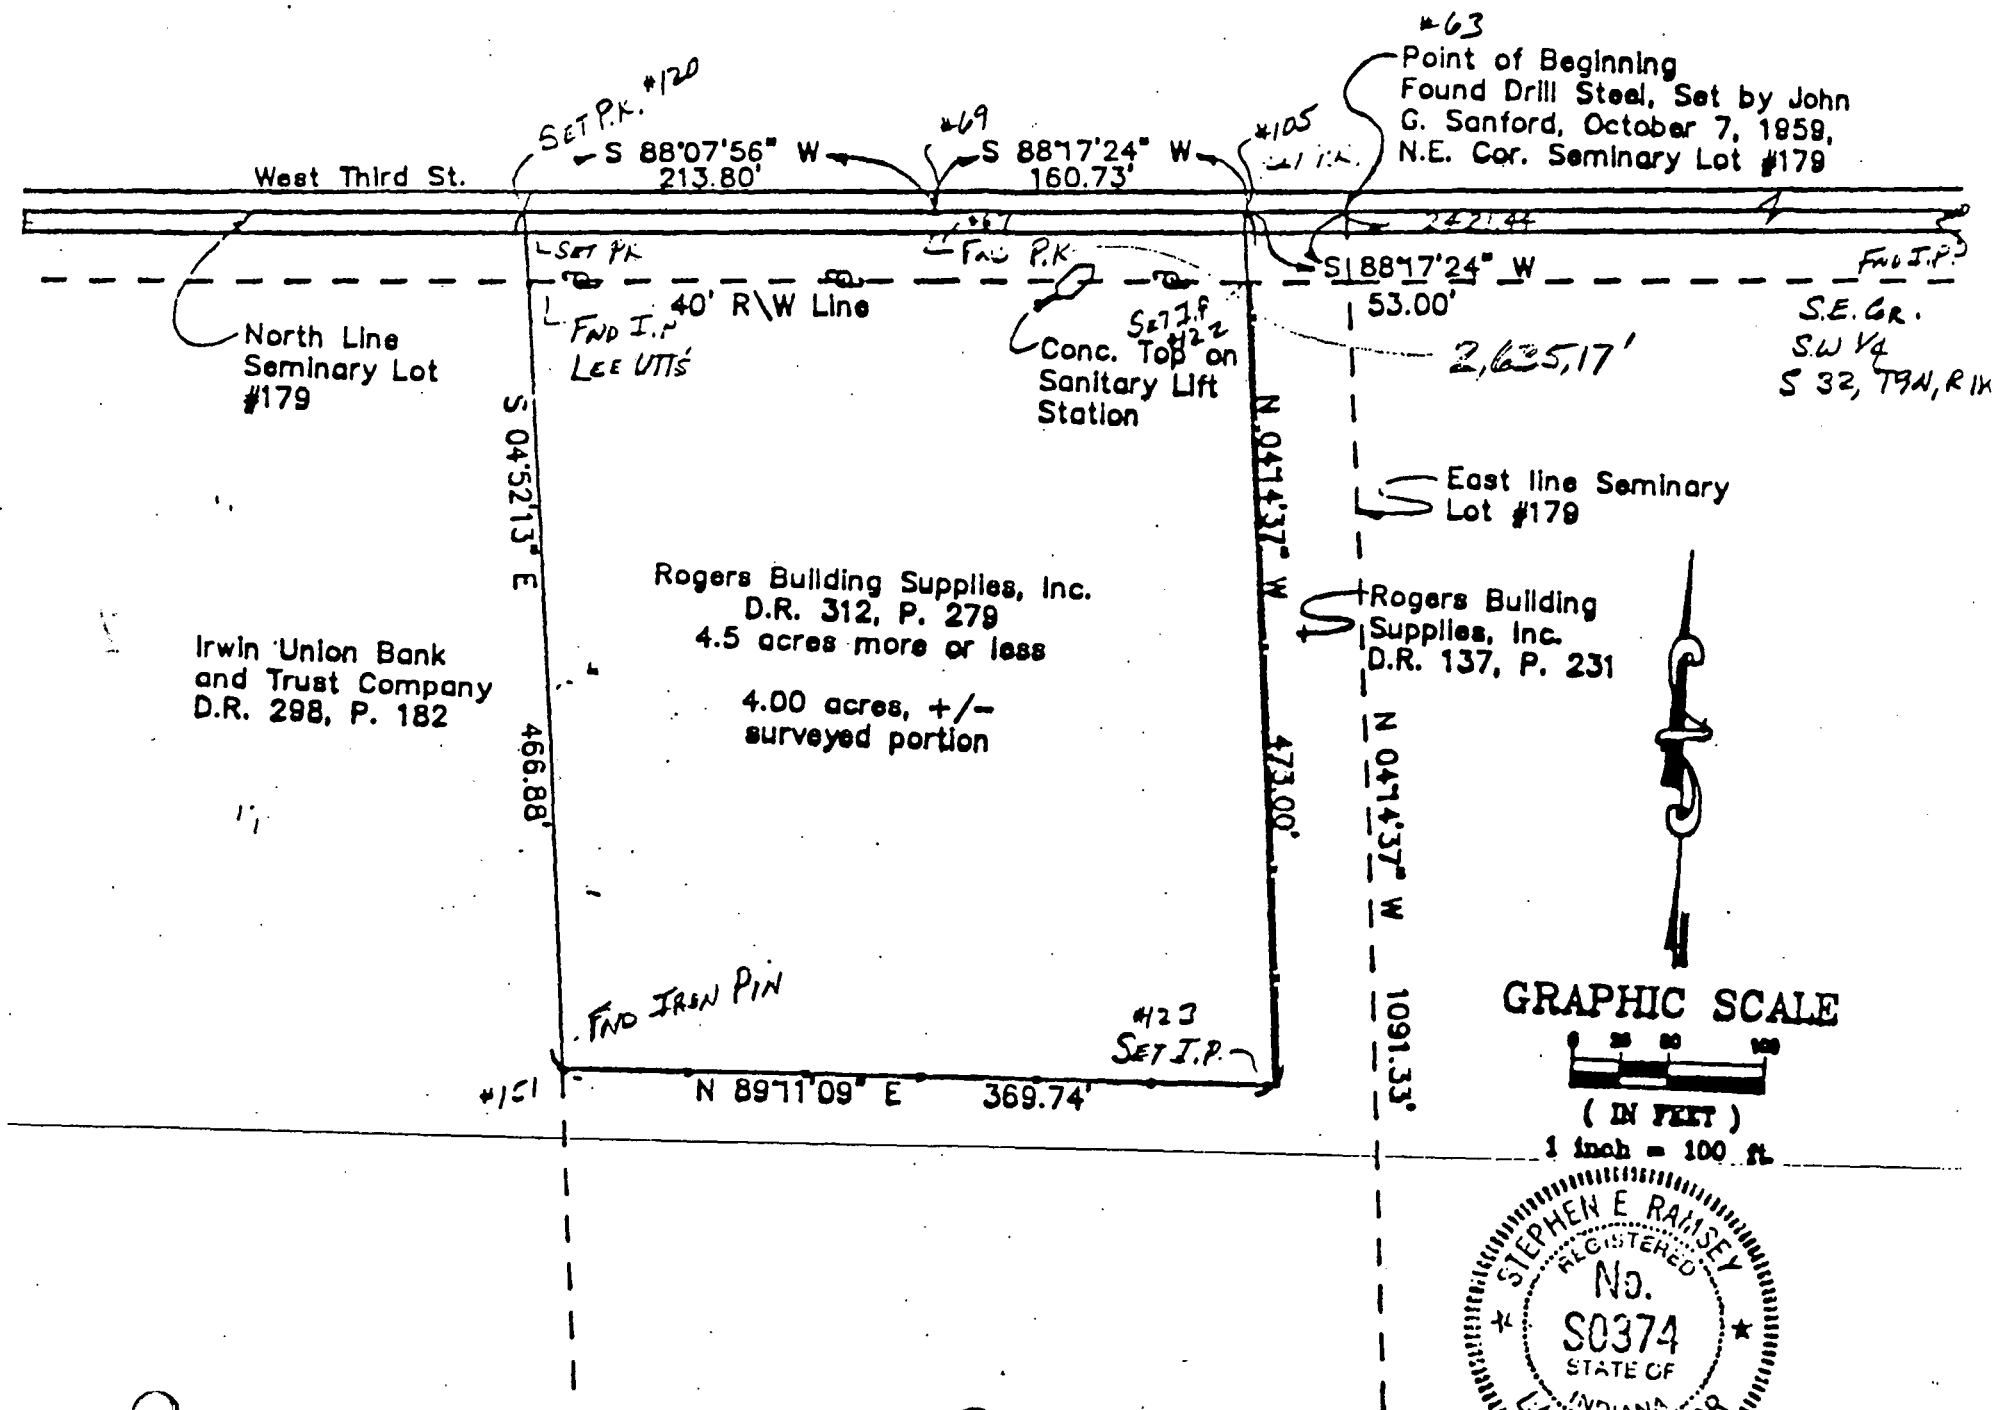 #63
Point of Beginning
Found Drill Steel, Set by John
G. Sanford, October 7, 1959,
N.E. Cor. Seminary Lot #179
SET P.K. #120
#69
#105
S 88°07'56" W
213.80'
S 88°17'24" W
160.73'
West Third St.
2421.44
SET PK
FND P.K.
S 88°17'24" W
53.00'
FND I.P.
S.E. COR.
SW 1/4
S 32, T9N, R 1W
40' R\W Line
FND I.P.
LEE UTTS
SET I.P.
#22
North Line
Seminary Lot
#179
Conc. Top on
Sanitary Lift
Station
2,635.17'
S 04°52'13" E
466.88'
N 04°14'37" W
473.00'
East line Seminary
Lot #179
Rogers Building Supplies, Inc.
D.R. 312, P. 279
4.5 acres more or less
4.00 acres, +/-
surveyed portion
Rogers Building
Supplies, Inc.
D.R. 137, P. 231
Irwin Union Bank
and Trust Company
D.R. 298, P. 182
N 04°14'37" W 1091.33'
FND IRON PIN
#423
SET I.P.
#151
N 89°11'09" E 369.74'
GRAPHIC SCALE
0 100
( IN FEET )
1 inch = 100 ft.
STEPHEN E RAMSEY
REGISTERED
No.
S0374
STATE OF
INDIANA